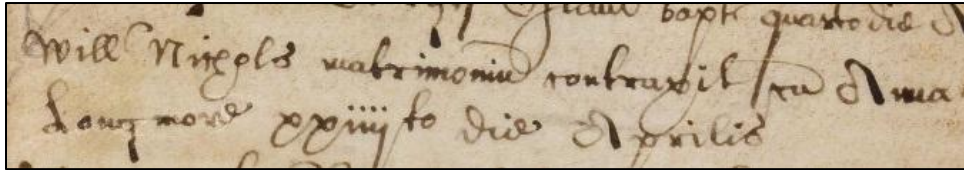 bapt quarto die
Will Nicols matrimoniu contraxit cu Anna
Longmore xxiiijto die Aprilis